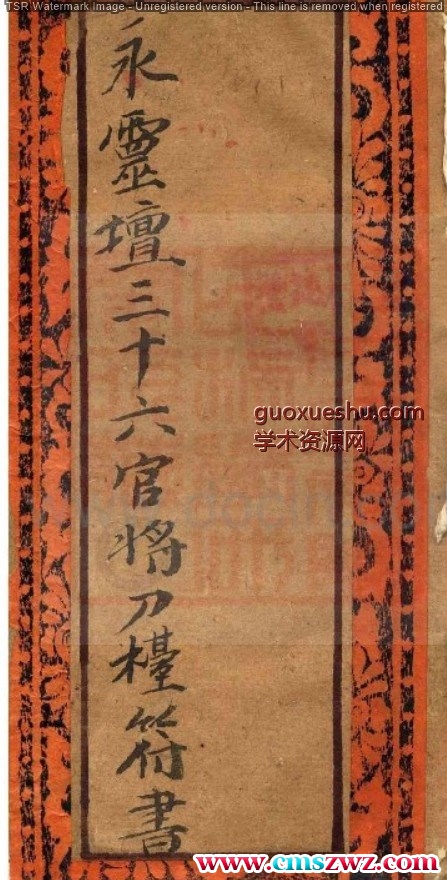 TSR Watermark Image - Unregistered version - This line is removed when registered
永靈壇三十六官將刀檯符書
guoxueshu.com
学术资源网
www.cmszwz.com